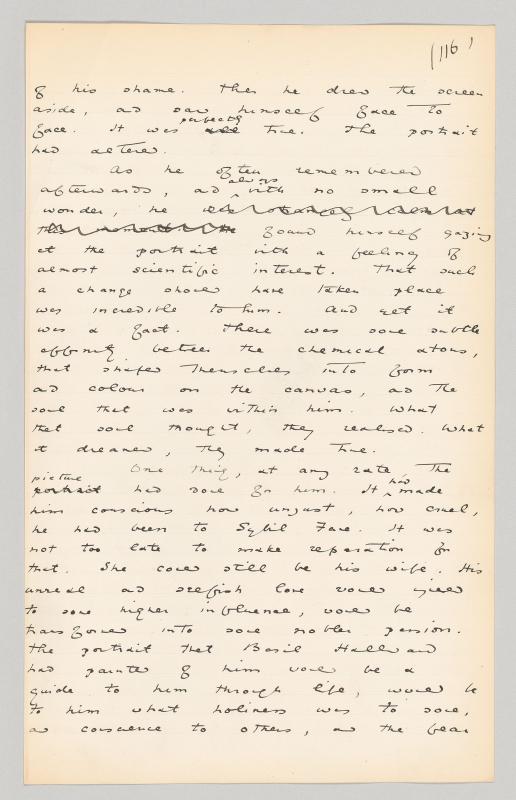 (116)
of his shame. Then he drew the screen
aside, and saw himself face to
perfectly
face. It was true. The portrait
had altered.
As he often remembered
always
afterwards, and with no small
wonder, he
found himself gazing
at the portrait with a feeling of
almost scientific interest. That such
a change should have taken place
was incredible to him. And yet it
was a fact. There was some subtle
affinity between the chemical atoms,
that shaped themselves into form
and colour on the canvas, and the
soul that was within him. What
that soul thought, they realised. What
it dreamed, they made true.
One thing, at any rate, the
picture had
portrait had done for him. It made
him conscious how unjust, how cruel,
he had been to Sybil Vane. It was
not too late to make reparation for
that. She could still be his wife. His
unreal and selfish love would yield
to some higher influence, would be
transformed into some nobler passion.
The portrait that Basil Hallward
had painted of him would be a
guide to him through life, would be
to him what holiness was to some,
and conscience to others, and the fear